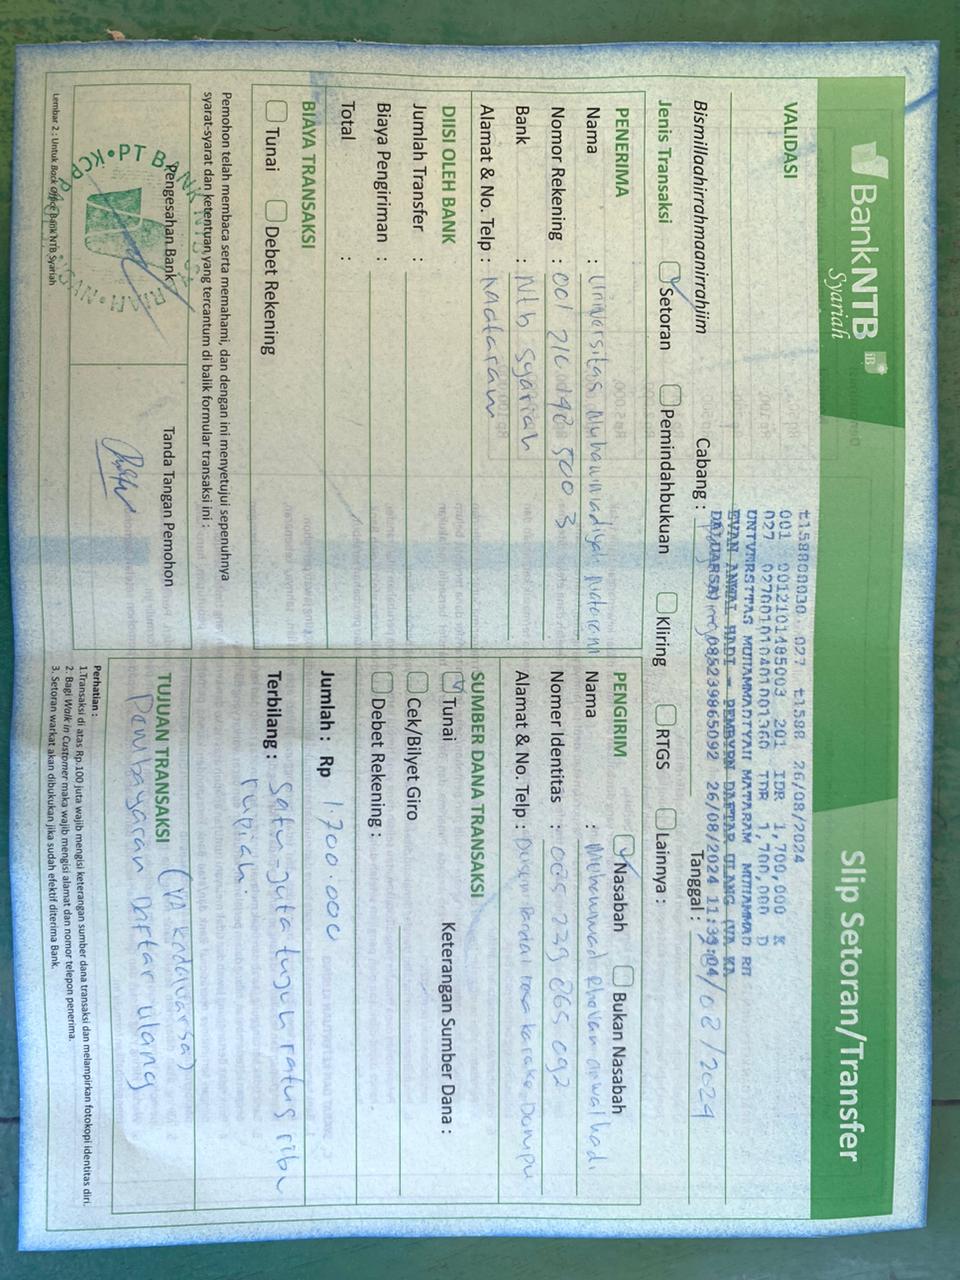 BankNTB
Syariah
Slip Setoran/Transfer
VALIDASI
t158800030 027 t1588 26/08/2024
001 0012101485003 201 IDR 1,700,000 K
027 027001010401001360 IDR 1,700,000 D
UNIVERSITAS MUHAMMADIYAH MATARAM MUHAMMAD RH
EVAN ANWAL HADI - PEMBYRN DAFTAR ULANG (VA KA
DALUARSA) 085239865092 26/08/2024 11:39:04
Bismillaahirrahmaanirrahiim
Cabang :
Tanggal : /08/2024
Jenis Transaksi
Setoran
Pemindahbukuan
Kliring
RTGS
Lainnya :
PENERIMA
Nama : Universitas Muhammadiyah Mataram
Nomor Rekening : 001 210 148 500 3
Bank : Ntb Syariah
Alamat & No. Telp : Mataram
PENGIRIM
Nasabah
Bukan Nasabah
Nama : anwal hadi
Nomer Identitas : 085 239 865 092
Alamat & No. Telp : Dusun Dompu
DIISI OLEH BANK
Jumlah Transfer :
Biaya Pengiriman :
Total :
SUMBER DANA TRANSAKSI
Tunai
Keterangan Sumber Dana :
Cek/Bilyet Giro
Debet Rekening :
BIAYA TRANSAKSI
Tunai
Debet Rekening
Jumlah : Rp 1.700.000
Terbilang : Satu juta tujuh ratus ribu
rupiah.
Pemohon telah membaca serta memahami, dan dengan ini menyetujui sepenuhnya
syarat-syarat dan ketentuan yang tercantum di balik formular transaksi ini :
Pengesahan Bank
Tanda Tangan Pemohon
TUJUAN TRANSAKSI
(VA Kadaluarsa)
Pembayaran Daftar ulang
Perhatian :
1.Transaksi di atas Rp.100 juta wajib mengisi keterangan sumber dana transaksi dan melampirkan fotokopi identitas diri.
2. Bagi Walk in Customer maka wajib mengisi alamat dan nomor telepon penerima.
3. Setoran warkat akan dibukukan jika sudah efektif diterima Bank.
Lembar 2 : Untuk Back Office Bank NTB Syariah